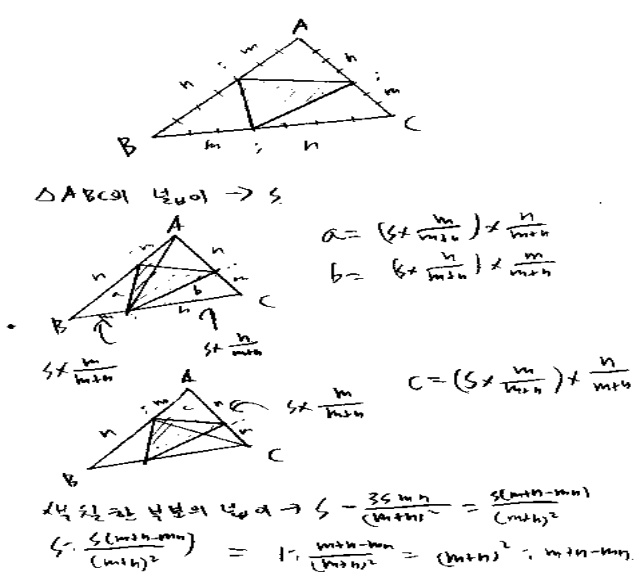 A
m
:
n
n
:
m
B
m : n
C
△ABC의 넓이 → S
A
n : m
n : m
a
b
B
n
C
a = (S × m/(m+n)) × n/(m+n)
b = (S × n/(m+n)) × m/(m+n)
S × m/(m+n)
S × n/(m+n)
A
n : m
c
n
S × m/(m+n)
B
C
c = (S × m/(m+n)) × n/(m+n)
색칠한 부분의 넓이 → S - 3Smn/(m+n)² = S(m+n-mn)/(m+n)²
S : S(m+n-mn)/(m+n)² = 1 : m+n-mn/(m+n)² = (m+n)² : m+n-mn